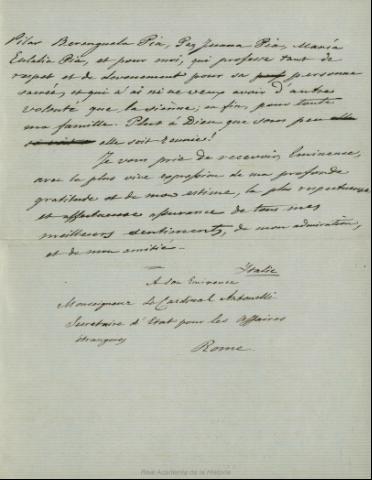 Pilar Berenguela Pia, Paz Juana Pia, Maria
Eulalia Pia, et pour moi, qui professe tant de
respet et de devouement pour sa personne
sacrée, et qui n'ai ni ne veux avoir d'autres
volonté que la sienne; en fin, pour toute
ma famille. Plut à Dieu que sous peu elle
elle soit reunie!
Je vous prie de recevoir, Eminence,
avec la plus vive expression de ma profonde
gratitude et de mon estime, la plus respectueuse
et affectueuse assurance de tous mes
meilleurs sentiments, de mon admiration,
et de mon amitié.
Italie
A Son Eminence
Monseigneur Le Cardinal Antonelli
Secretaire d'Etat pour les affaires
étrangeres
Rome
Real Academia de la Historia